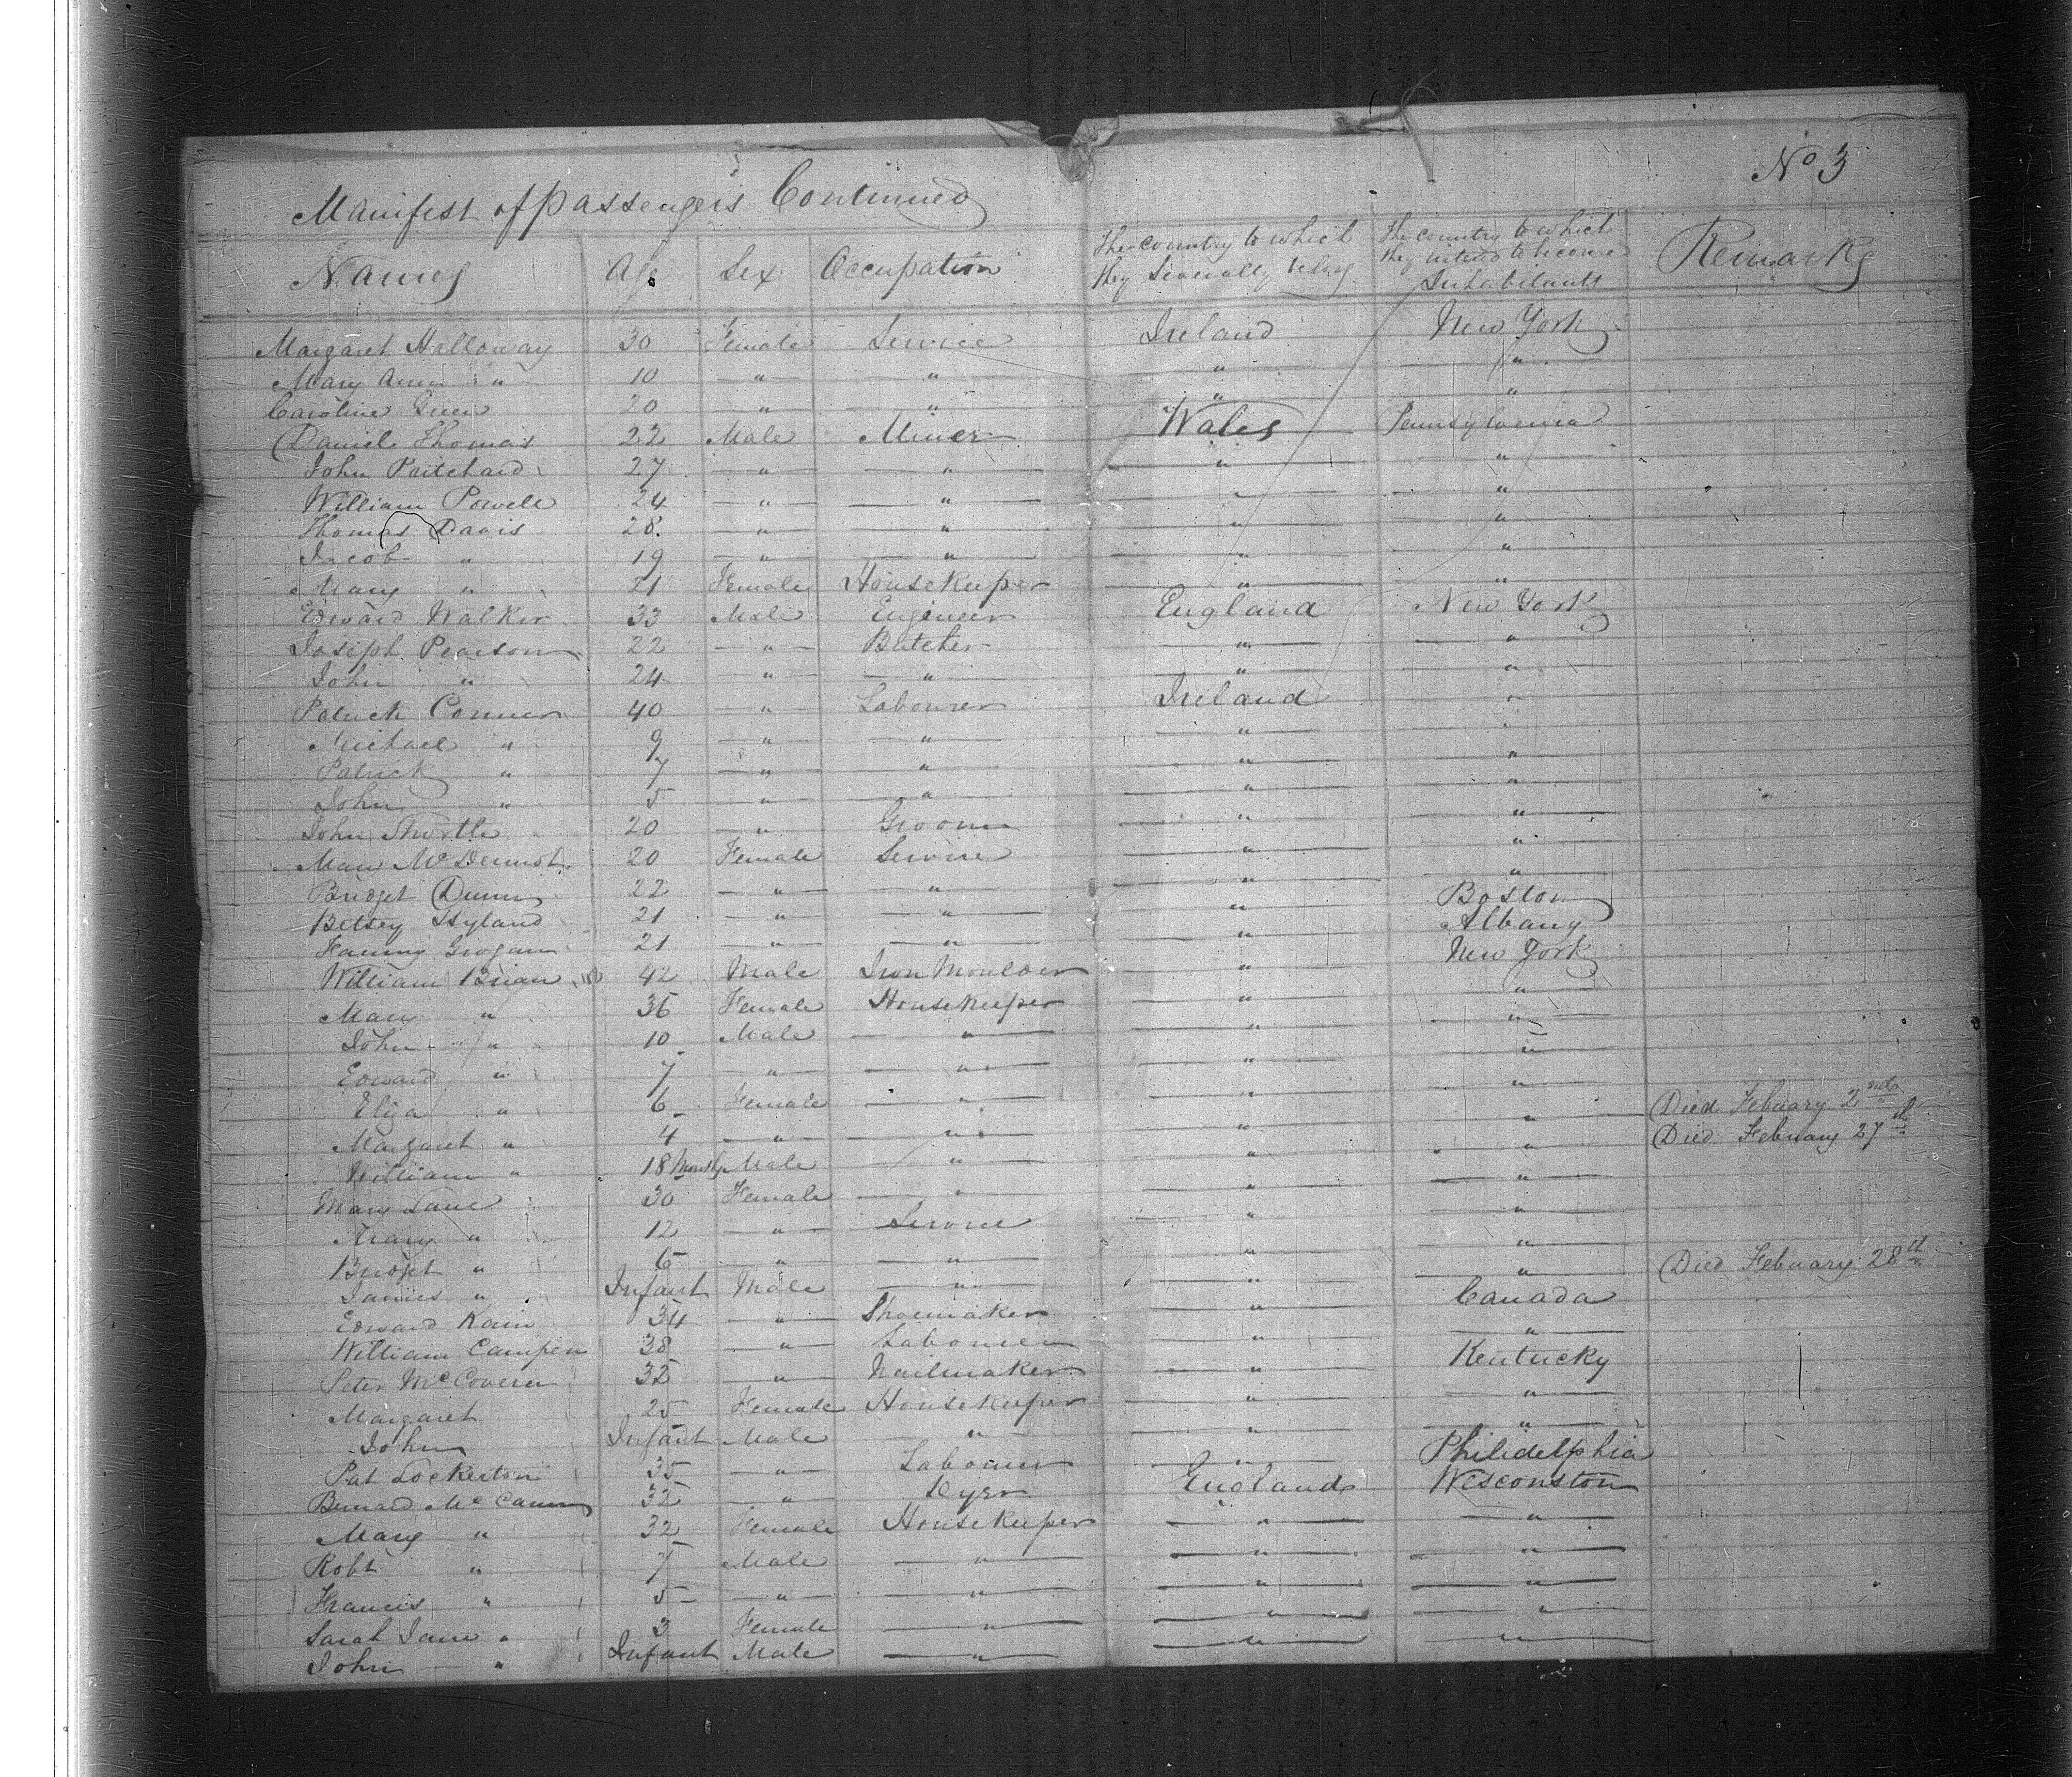 No 3
Manifest of passengers Continued
Names Age Sex Occupation The country to which they severally belong The country to which they intend to become Inhabitants Remarks
Margaret Halloway 30 Female Service Ireland New York
Mary Ann " 10 " " " "
Caroline Green 20 " " " "
Daniel Thomas 22 Male Miner Wales Pennsylvania
John Pritchard 27 " " " "
William Powell 24 " " " "
Thomas Davis 28 " " " "
Jacob " 19 " " " "
Mary " 21 Female Housekeeper " "
Edward Walker 33 Male Engineer England New York
Joseph Pearson 22 " Butcher " "
John " 24 " " " "
Patrick Conner 40 " Labourer Ireland "
Michael " 9 " " " "
Patrick " 7 " " " "
John " 5 " " " "
John Shortle 20 " Groom " "
Mary McDermot 20 Female Service " "
Bridget Dunn 22 " " " "
Betsey Hyland 21 " " " Boston
Fanny Grogan 21 " " " Albany
William Brian 42 Male Iron Moulder " New York
Mary " 36 Female Housekeeper " "
John " 10 Male " " "
Edward " 7 " " " "
Eliza " 6 Female " " "
Margaret " 4 " " " " Died Febuary 2nd
William " 18 Months Male " " " Died February 27th
Mary Lane 30 Female " " "
Mary " 12 " Service " "
Bridget " 6 " " " "
James " Infant Male " " " Died Febuary 28th
Edward Kain 34 " Shoemaker " Canada
William Campen 38 " Labourer " "
Peter McCovern 32 " Nailmaker " Kentucky
Margaret 25 Female Housekeeper " "
John Infant Male " " "
Pat Lockerton 35 " Labourer " Philidelphia
Bernard McCann 32 " Dyer England Wesconston
Mary " 32 Female Housekeeper " "
Robt " 7 Male " " "
Francis " 5 " " " "
Sarah Jane " 3 Female " " "
John " Infant Male " " "